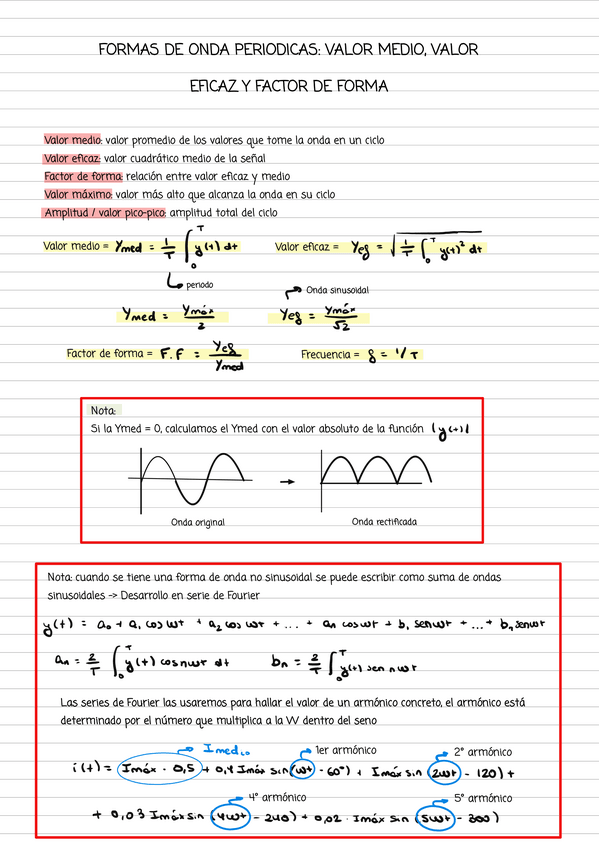 FORMAS DE ONDA PERIODICAS: VALOR MEDIO, VALOR
EFICAZ Y FACTOR DE FORMA
Valor medio: valor promedio de los valores que tome la onda en un ciclo
Valor eficaz: valor cuadrático medio de la señal
Factor de forma: relación entre valor eficaz y medio
Valor máximo: valor más alto que alcanza la onda en su ciclo
Amplitud / valor pico-pico: amplitud total del ciclo
Valor medio = Ymed = 1/T ∫₀ᵀ y(t) dt Valor eficaz = Yef = √(1/T ∫₀ᵀ y(t)² dt)
periodo
Onda sinusoidal
Ymed = Ymáx/2 Yef = Ymáx/√2
Factor de forma = F.F = Yef/Ymed Frecuencia = f = 1/T
Nota:
Si la Ymed = 0, calculamos el Ymed con el valor absoluto de la función |y(t)|
Onda original Onda rectificada
Nota: cuando se tiene una forma de onda no sinusoidal se puede escribir como suma de ondas
sinusoidales -> Desarrollo en serie de Fourier
y(t) = a₀ + a₁ cos wt + a₂ cos wt + ... + an cos wt + b₁ senwt + ... + bn senwt
an = 2/T ∫₀ᵀ y(t) cosnwt dt bn = 2/T ∫₀ᵀ y(t) sen nwt
Las series de Fourier las usaremos para hallar el valor de un armónico concreto, el armónico está
determinado por el número que multiplica a la W dentro del seno
Imedio 1er armónico 2º armónico
i(t) = Imáx · 0,5 + 0,4 Imáx sin (wt - 60º) + Imáx sin (2wt - 120) +
4º armónico 5º armónico
+ 0,03 Imáx sin (4wt - 240) + 0,02 · Imáx sin (5wt - 300)